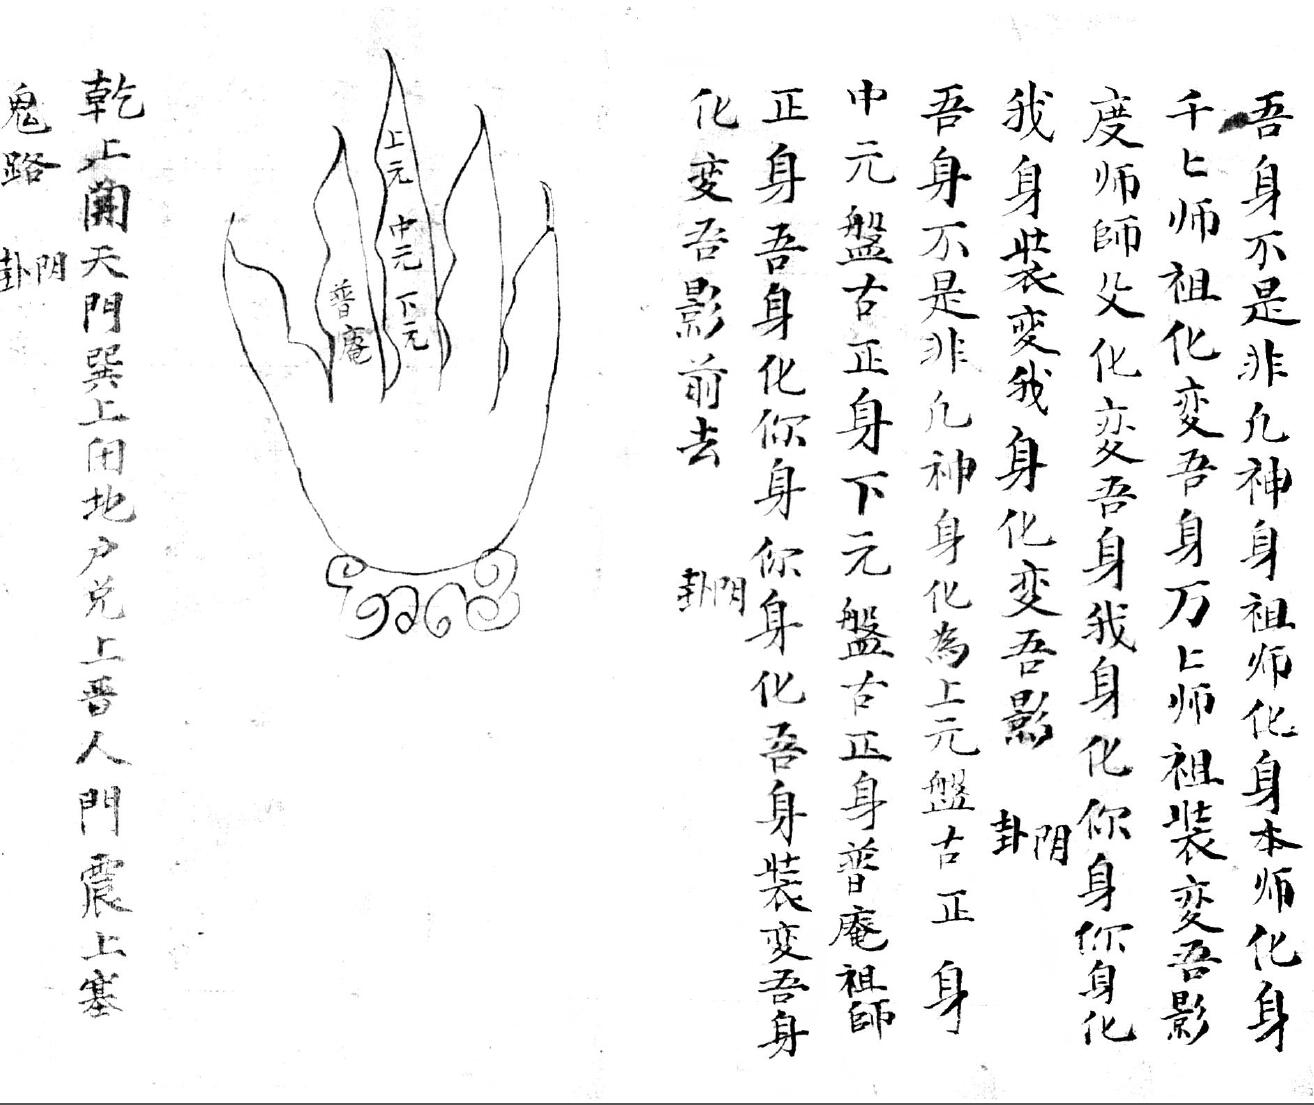 吾身不是非凡神身祖师化身本师化身
千〻师祖化变吾身万〻师祖装変吾影
度师師父化変吾身我身化你身你身化
我身装変我身化变吾影
卦阴
吾身不是非凡神身化為上元盤古正身
中元盤古正身下元盤古正身普庵祖師
正身吾身化你身你身化吾身装変吾身
化变吾影前去
卦阴
上元
中元
下元
普庵
乾上開天門巽上闭地户兑上晋人門震上塞
鬼路
卦阴